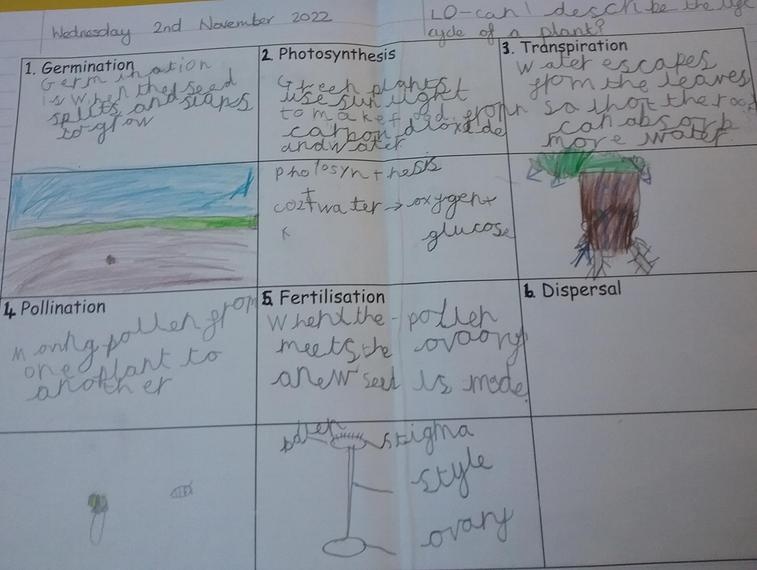 Wednesday 2nd November 2022
LO-can I describe the life
cycle of a plant?
1. Germination
Germination
is when the seed
splits and staps
to glow
2. Photosynthesis
Green plants
use sun light
to make food from
carbon dioxide
and water
3. Transpiration
Water escapes
from the leaves
so that the roots
can absorb
more water
photosynthesis
co2+water→oxygen+
glucose
4. Pollination
pollen from
one plant to
another
5. Fertilisation
When the pollen
meets the ovaory
a new seed is made
6. Dispersal
pollen
stigma
style
ovary